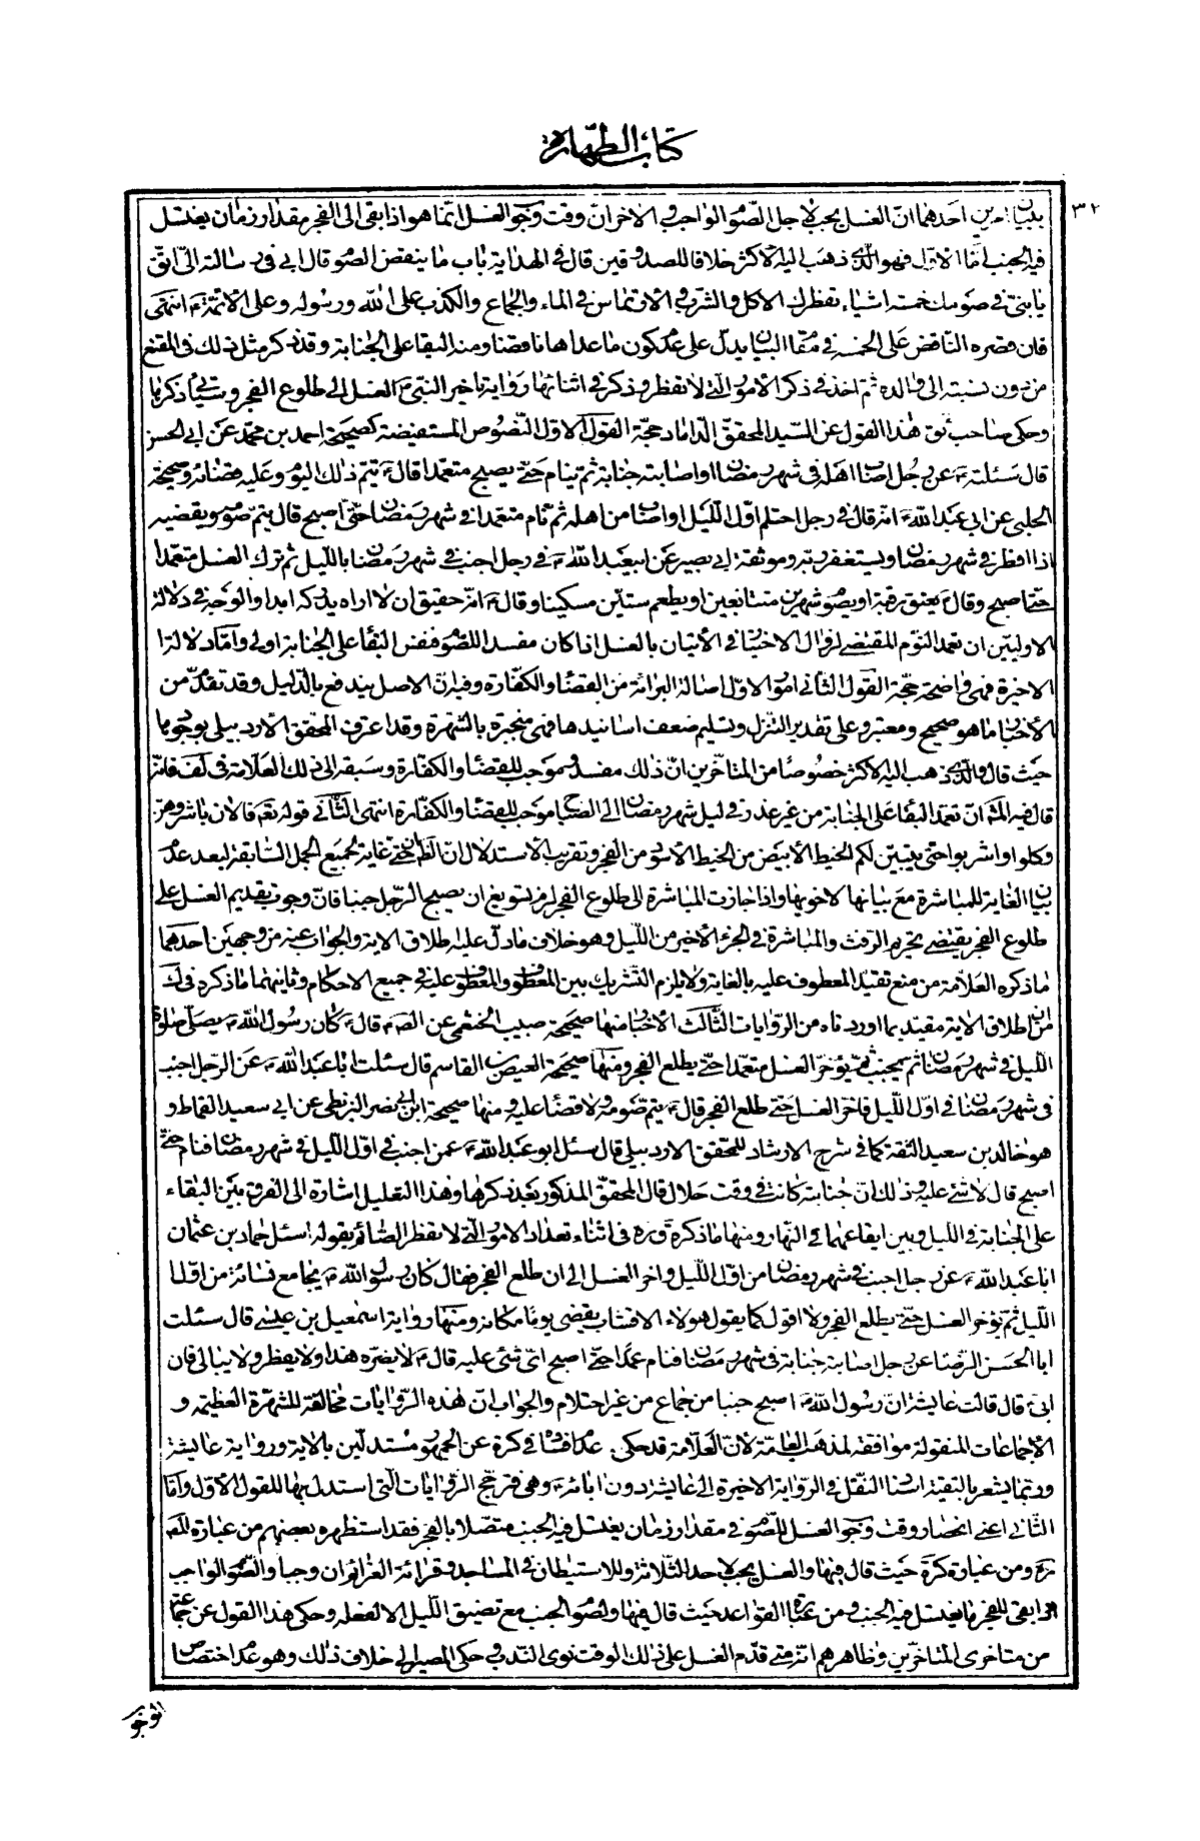 كتاب الطهارة
٣٢
احدهما انّ الغسل يجب لاجل الصّوم الواجب والاخر انّ وقت وجوب الغسل انّما هو اذا بقى الى الفجر مقدار زمان يغتسل
فيه الجنب امّا الاوّل فهو الّذى ذهب اليه الاكثر خلافا للصدوقين قال فى الهداية باب ما ينقض الصّوم قال ابى فى رسالته الىّ اتّق
يا بنىّ فى صومك خمسة اشياء تفطرك الاكل والشرب والارتماس فى الماء والجماع والكذب على الله ورسوله وعلى الائمّة انتهى
فان قصره الناقض على الخمسة فى مقام البيان يدلّ على عدم كون ما عداها ناقضا ومنه البقاء على الجنابة وقد ذكر مثل ذلك فى المقنع
من دون نسبته الى والده ثم اخذ فى ذكر الامور الّتى لا تفطر وذكر فى اثنائها رواية تاخير النبىّ الغسل الى طلوع الفجر وسياتى ذكرها
وحكى صاحب ئق هذا القول عن السّيد المحقق الدّاماد حجّة القول الاوّل النّصوص المستفيضة كصحيحة احمد بن محمّد عن ابى الحسن
قال سئلته عن رجل اصاب اهله فى شهر رمضان او اصابته جنابة ثم ينام حتّى يصبح متعمّدا قال يتمّ ذلك اليوم وعليه قضائه وصحيحة
الحلبى عن ابى عبد الله انّه قال فى رجل احتلم اوّل اللّيل او اصاب من اهله ثم نام متعمّدا فى شهر رمضان حتّى اصبح قال يتمّ صومه ويقضيه
اذا افطر فى شهر رمضان ويستغفر ربّه وموثقة ابى بصير عن ابيعبد الله فى رجل اجنب فى شهر رمضان بالليل ثم ترك الغسل متعمّدا
حتّى اصبح وقال يعتق رقبة او يصوم شهرين متتابعين او يطعم ستّين مسكينا وقال انّه حقيق ان لا اراه يدركه ابدا والوجه فى دلالة
الاوليين ان تعمّد النّوم المقتضى لزوال الاختيار فى الاتيان بالغسل اذا كان مفسدا للصّوم فنفس البقاء على الجنابة اولى وامّا دلالة
الاخيرة فهى واضحة حجّة القول الثانى امور الاوّل اصالة البرائة من القضاء والكفّارة وفيه انّ الاصل يندفع بالدّليل وقد تقدّم من
الاخبار ما هو صحيح ومعتبر وعلى تقدير التنزّل وتسليم ضعف اسانيدها فهى منجبرة بالشهرة وقد اعترف المحقق الاردبيلى بوجوبها
حيث قال والّذى ذهب اليه الاكثر خصوصا من المتاخّرين انّ ذلك مفسد موجب للقضاء والكفّارة وسبقه الى ذلك العلّامة فى لف فانّه
قال فيه المشهور انّ تعمّد البقاء على الجنابة من غير عذر فى ليل شهر رمضان الى الصّباح موجب للقضاء والكفّارة انتهى الثّانى قوله تعالى فالان باشروهنّ
وكلوا واشربوا حتى يتبيّن لكم الخيط الابيض من الخيط الاسود من الفجر وتقريب الاستدلال ان الظاهر كون حتّى غاية لجميع الجمل السّابقة لبعد عدم
بيان الغاية للمباشرة مع بيانها لاخويها واذا جازت المباشرة الى طلوع الفجر لزم تسويغ ان يصبح الرّجل جنبا فانّ وجوب تقديم الغسل على
طلوع الفجر يقتضى تحريم الرفث والمباشرة فى الجزء الاخير من اللّيل وهو خلاف ما دلّ عليه طلاق الاية والجواب عنه من وجهين احدهما
ما ذكره العلّامة من منع تقييد المعطوف عليه بالغاية ولا يلزم التّشريك بين المعطوف والمعطوف عليه فى جميع الاحكام وثانيهما ما ذكره فى ك
من انّ اطلاق الاية مقيّد بما اوردناه من الرّوايات الثّالث الاخبار منها صحيحة حبيب الخثعمى عن الصّ قال كان رسول الله يصلّى صلوة
الليل فى شهر رمضان ثم يجنب ثمّ يؤخّر الغسل متعمّدا حتّى يطلع الفجر ومنها صحيحة العيص بن القاسم قال سئلت ابا عبد الله عن الرّجل اجنب
فى شهر رمضان فى اوّل اللّيل فاخّر الغسل حتّى طلع الفجر قال يتمّ صومه ولا قضاء عليه ومنها صحيحة ابن ابى نصر البزنطى عن ابى سعيد القماط و
هو خالد بن سعيد الثقة كما فى شرح الارشاد للمحقق الاردبيلى قال سئل ابو عبد الله عمّن اجنب فى اوّل اللّيل فى شهر رمضان فنام حتّى
اصبح قال لا شئ عليه وذلك انّ جنابته كانت فى وقت حلال قال المحقّق المذكور بعد ذكرها وهذا التعليل اشارة الى الفرق بين البقاء
على الجنابة فى الليل وبين ايقاعها فى النّهار ومنها ما ذكره ق ره فى اثناء تعداد الامور الّتى لا تفطر الصّائم بقوله اسئل حماد بن عثمان
ابا عبد الله عن رجل اجنب فى شهر رمضان من اوّل اللّيل واخّر الغسل الى ان طلع الفجر فقال كان رسول الله يجامع نسائه من اوّل
اللّيل ثمّ يؤخر الغسل حتّى يطلع الفجر ولا اقول كما يقول هولاء الاقشاب يقضى يوما مكانه ومنها رواية اسمعيل بن عيسى قال سئلت
ابا الحسن الرّضا عن رجل اصابته جنابة فى شهر رمضان فنام عمدا حتّى اصبح اىّ شئ عليه قال لا يضرّه هذا ولا يفطر ولا يبالى فان
ابى قال قالت عايشة انّ رسول الله اصبح جنبا من جماع من غير احتلام والجواب انّ هذه الرّوايات مخالفة للشهرة العظيمة و
الاجماعات المنقولة موافقة لمذهب العامّة لانّ العلّامة قد حكى عدم افساده فى كرة عن الجمهور مستدلّين بالاية ورواية عايشة
وربّما يشعر بالتقيّة اسناد النّقل فى الرّواية الاخيرة الى عايشة دون ابائه وهى فترجّح الرّوايات الّتى استدلّ بها للقول الاوّل وامّا
الثّانى اعنى انحصار وقت وجوب الغسل للصّوم فى مقدار زمان يغتسل فيه الجنب متصلا بالفجر فقد استظهره بعضهم من عبارة للمعة
ره ومن عبارة كرة حيث قال فيها والغسل يجب لاحد الثّلاثة وللاستيطان فى المساجد وقرائة الغرائم ان وجبا والصّوم الواجب
اذا بقى للفجر ما يغتسل فيه الجنب ومن عبارة القواعد حيث قال فيها ولصوم الجنب مع تضيّق اللّيل الا لفعله وحكى هذا القول عن جماعة
من متاخرى المتاخّرين وظاهرهم انّه متى قدّم الغسل على ذلك الوقت نوى النّدب وحكى المصير الى خلاف ذلك وهو عدم اختصاص
الوجوب